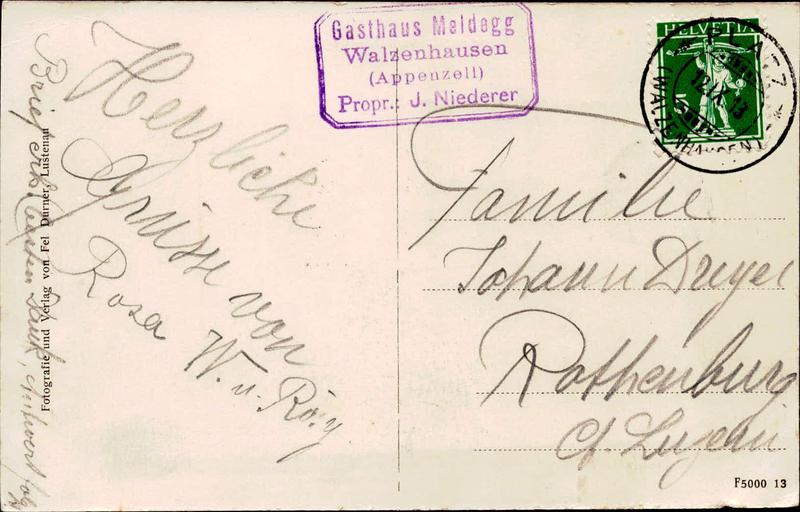 Gasthaus Meldegg
Walzenhausen
(Appenzell)
Propr.: J. Niederer
HELVETIA
PLATZ
12.IX.13
WALZENHAUSEN
Herzliche
Grüsse von
Rosa
W. u. Rösy
Brief erhalten Dank, Antwort folgt
Fotografie und Verlag von Fel. Durner, Lustenau
Familie
Johann Dreyer
Rothenburg
Ct. Luzern
F5000 13